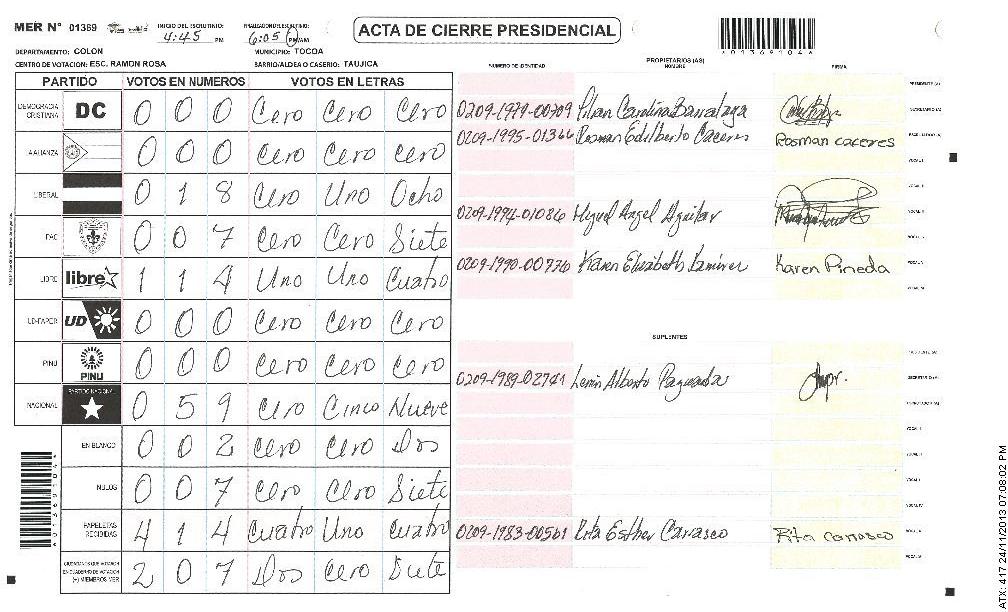 MER N° 01369
INICIO DEL ESCRUTINIO:
4:45 PM
6:05 PM/AM
ACTA DE CIERRE PRESIDENCIAL
A01369104A
DEPARTAMENTO: COLON
MUNICIPIO: TOCOA
CENTRO DE VOTACION: ESC. RAMON ROSA
BARRIO/ALDEA O CASERIO: TAUJICA
NUMERO DE IDENTIDAD
PROPIETARIOS (AS)
NOMBRE
FIRMA
PARTIDO VOTOS EN NUMEROS VOTOS EN LETRAS
DEMOCRACIA CRISTIANA DC 0 0 0 Cero Cero Cero
0209-1979-00709
ALIANZA 0 0 0 Cero Cero Cero
0209-1995-01366 Rosman Edilberto Caceres Rosman caceres
LIBERAL 0 1 8 Cero Uno Ocho
0209-1994-01086 Miguel Angel Aguilar
PAC 0 0 7 Cero Cero Siete
LIBRE libre 1 1 4 Uno Uno Cuatro
0209-1990-00736 Karen Elizabeth Ramirez Karen Pineda
UD-FAPER UD 0 0 0 Cero Cero Cero
SUPLENTES
PINU PINU 0 0 0 Cero Cero Cero
0209-1989-02741 Lenin Alberto Paguada
NACIONAL PARTIDO NACIONAL 0 5 9 Cero Cinco Nueve
EN BLANCO 0 0 2 Cero Cero Dos
NULOS 0 0 7 Cero Cero Siete
PAPELETAS RECIBIDAS 4 1 4 Cuatro Uno Cuatro
0209-1983-00561 Rita Esther Carrasco Rita carrasco
CIUDADANOS QUE VOTARON EN CUADERNO DE VOTACION (+) MIEMBROS MER 2 0 7 Dos Cero Siete
A01369104A
ATX: 417 24/11/2013 07:08:02 PM